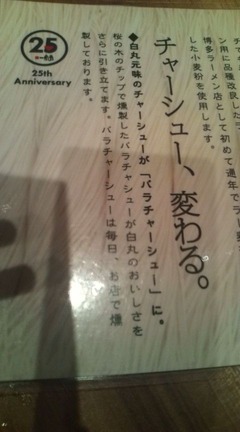 ン用に品種改良した
博多ラーメン店として初めて通年で
した小麦粉を使用します。
チャーシュー、変わる。
◆白丸元味のチャーシューが「バラチャーシュー」に。
桜の木のチップで燻製したバラチャーシューが白丸のおいしさを
さらに引き立てます。バラチャーシューは毎日、お店で燻
製しております。
25
25th
Anniversary